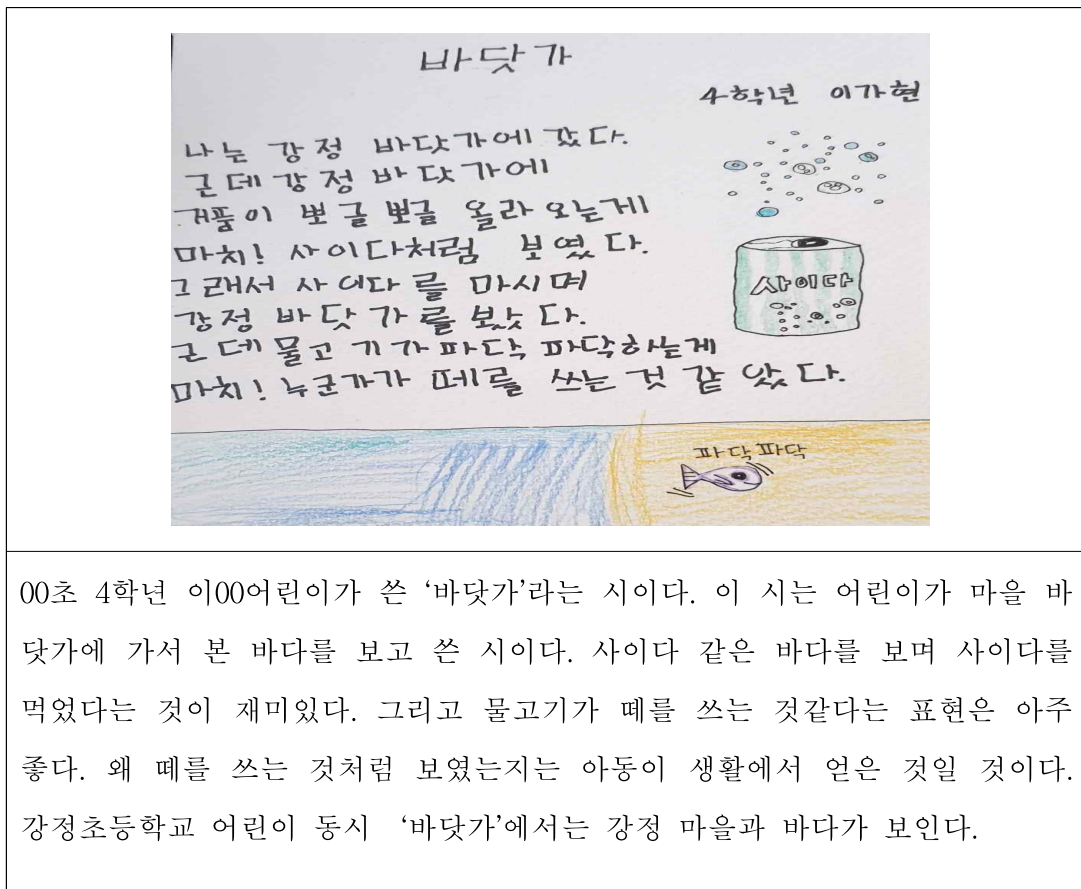 바닷가
4학년 이가현
나는 강정 바닷가에 갔다.
근데 강정 바닷가에
거품이 뽀글뽀글 올라오는게
마치! 사이다처럼 보였다.
그래서 사이다를 마시며
강정 바닷가를 봤다.
근데 물고기가 파닥 파닥하는게
마치! 누군가가 떼를 쓰는 것 같았다.
사이다
파닥파닥
00초 4학년 이00어린이가 쓴 ‘바닷가’라는 시이다. 이 시는 어린이가 마을 바
닷가에 가서 본 바다를 보고 쓴 시이다. 사이다 같은 바다를 보며 사이다를
먹었다는 것이 재미있다. 그리고 물고기가 떼를 쓰는 것같다는 표현은 아주
좋다. 왜 떼를 쓰는 것처럼 보였는지는 아동이 생활에서 얻은 것일 것이다.
강정초등학교 어린이 동시 ‘바닷가’에서는 강정 마을과 바다가 보인다.